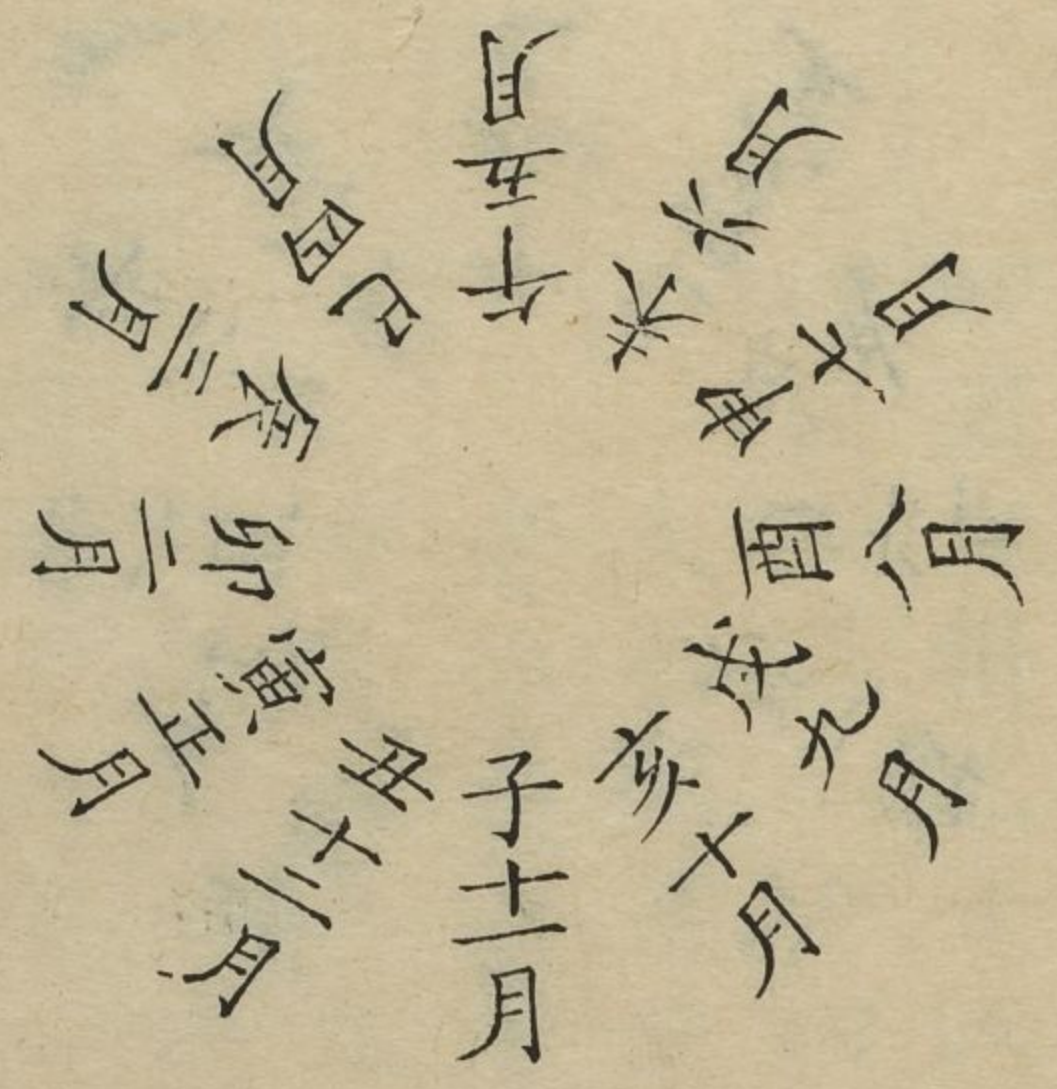 子十一月
丑十二月
寅正月
卯二月
辰三月
巳四月
午五月
未六月
申七月
酉八月
戌九月
亥十月